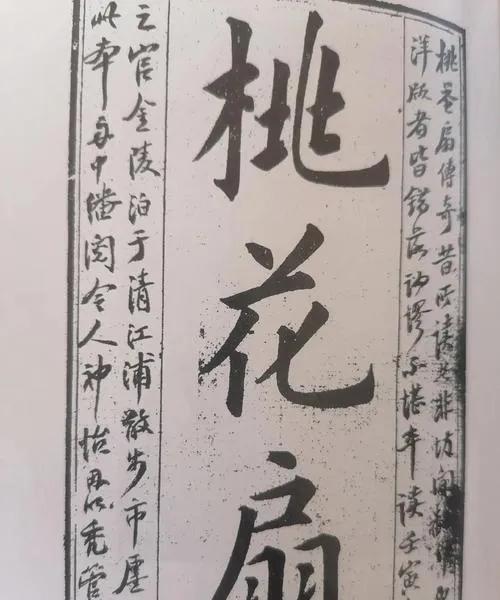 桃花扇傳奇昔所讀者非坊間
洋版者皆錯落訛謬不堪卒讀壬寅
桃花扇
之官金陵泊于清江浦散步市廛
此本每中缮閱令人神怡再以秃管